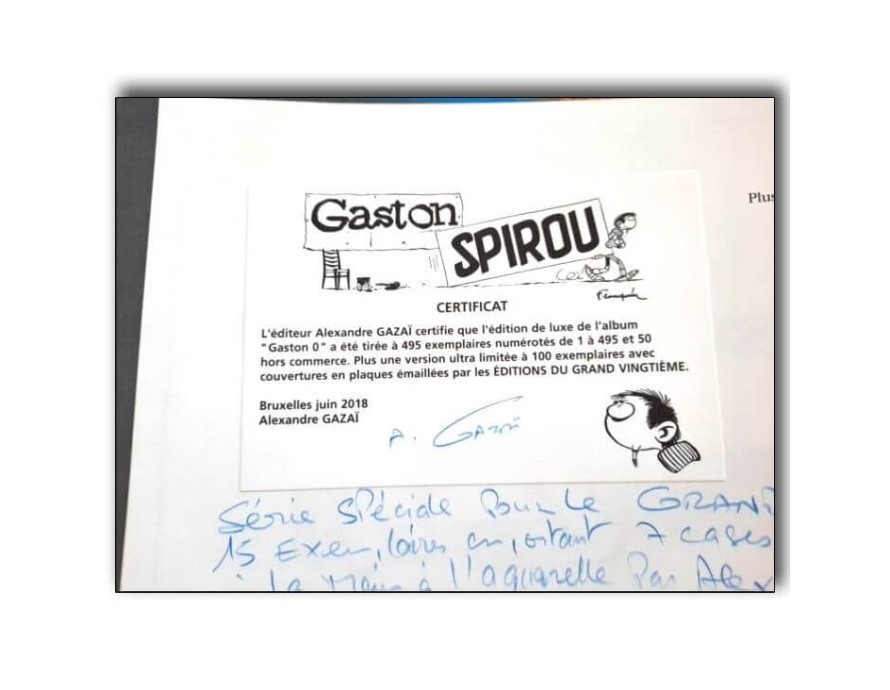 Plus
Gaston
SPIROU
Franquin
CERTIFICAT
L'éditeur Alexandre GAZAÏ certifie que l'édition de luxe de l'album
"Gaston 0" a été tirée à 495 exemplaires numérotés de 1 à 495 et 50
hors commerce. Plus une version ultra limitée à 100 exemplaires avec
couvertures en plaques émaillées par les ÉDITIONS DU GRAND VINGTIÈME.
Bruxelles juin 2018
Alexandre GAZAÏ
A. GAZAÏ
Série Spéciale Pour Le GRAND
15 Exemplaires comportant 7 cases
à La main à l'aquarelle Par Alex